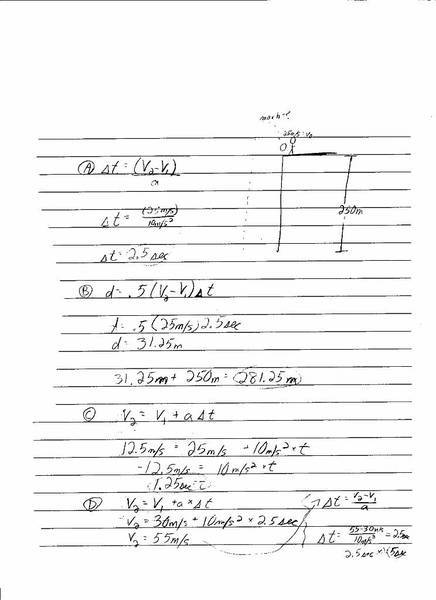 25m/s = V₂
250m
(A) Δt = (V₂-V₁)
a
Δt = (25m/s)
10m/s²
Δt = 2.5 sec
(B) d = .5 (V₂-V₁) Δt
.5 (25m/s) 2.5sec
d = 31.25m
31.25m + 250m = 281.25m
(C) V₂ = V₁ + a Δt
12.5m/s = 25m/s + 10m/s² × t
-12.5m/s = 10m/s² × t
1.25sec = t
(D) V₂ = V₁ + a × Δt
V₂ = 30m/s + 10m/s² × 2.5sec
V₂ = 55m/s
Δt = V₂-V₁
a
Δt = 55-30m/s = 2.5sec
10m/s²
2.5sec ×